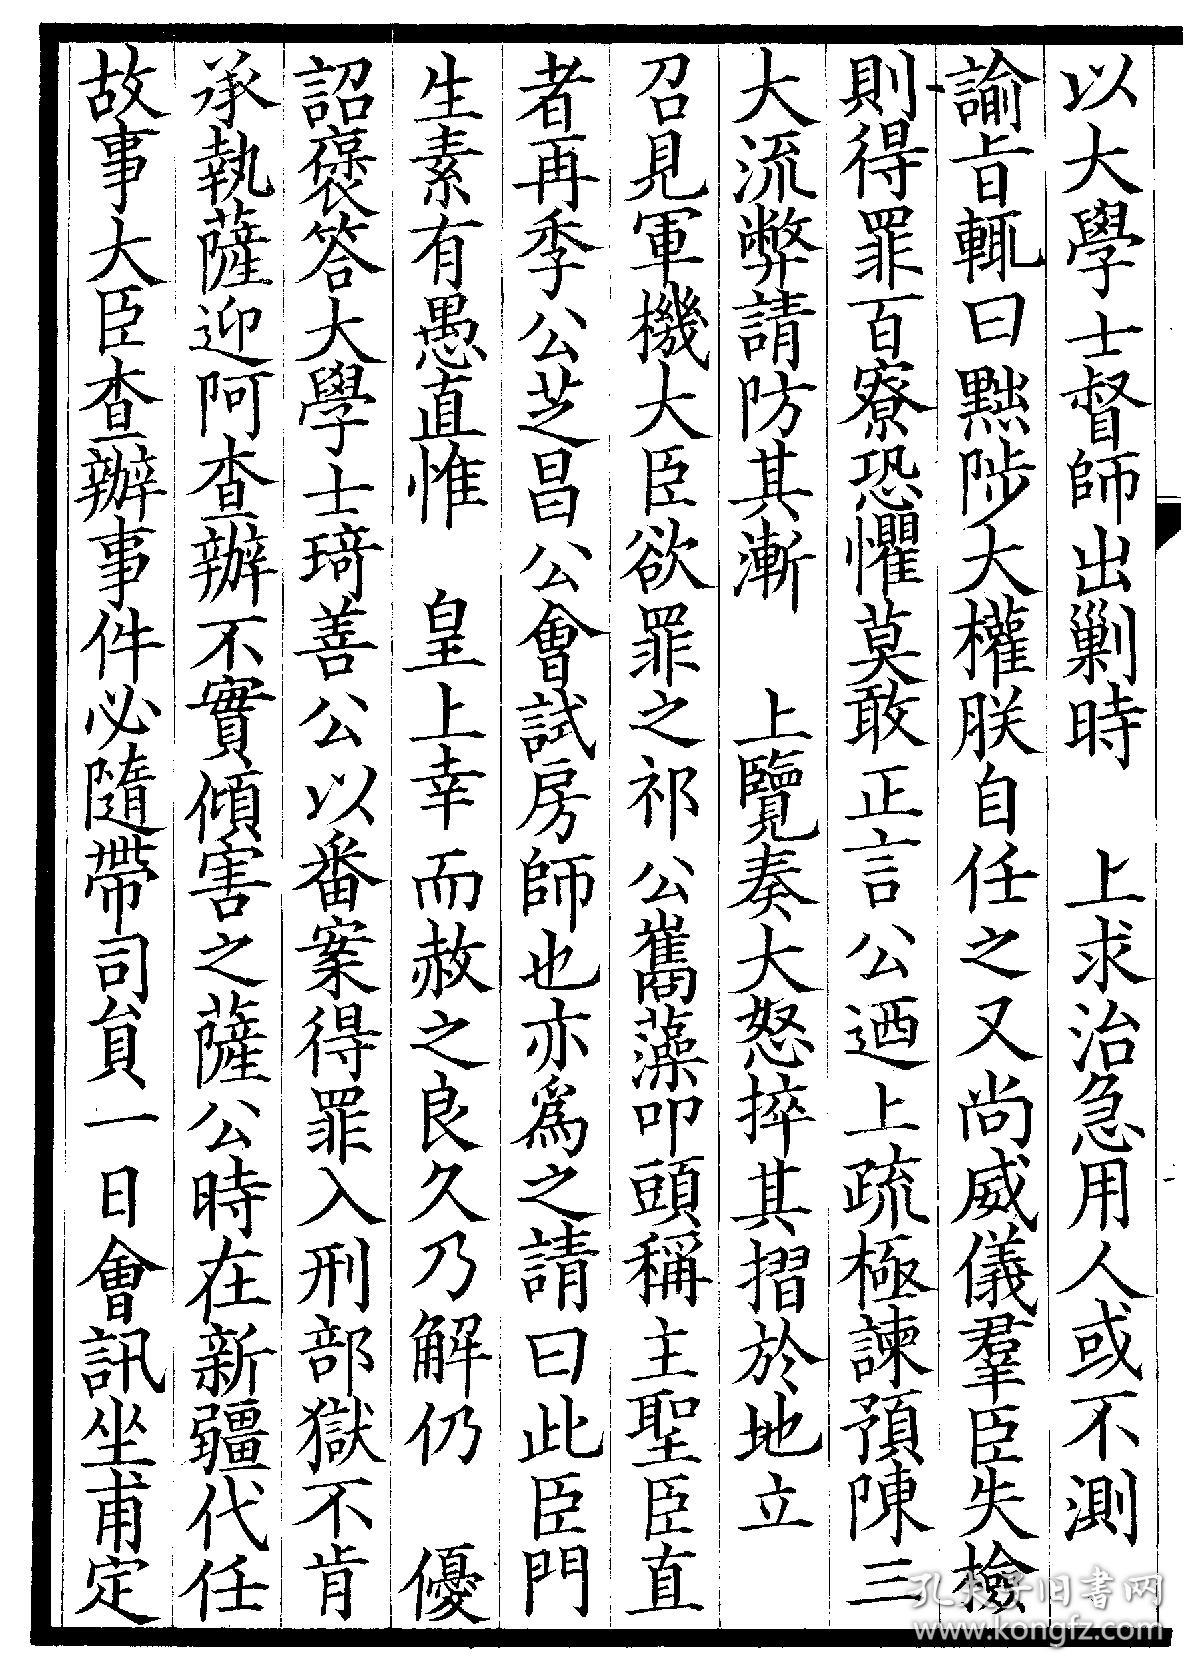 以大學士督師出剿時　上求治急用人或不測
諭旨輒曰黜陟大權朕自任之又尚威儀羣臣失檢
則得罪百寮恐懼莫敢正言公迺上疏極諫預陳三
大流弊請防其漸　上覽奏大怒捽其摺於地立
召見軍機大臣欲罪之祁公寯藻叩頭稱主聖臣直
者再季公芝昌公會試房師也亦為之請曰此臣門
生素有愚直惟　皇上幸而赦之良久乃解仍　優
詔褒答大學士琦善公以番案得罪入刑部獄不肯
承執薩迎阿查辦不實傾害之薩公時在新疆代任
故事大臣查辦事件必隨帶司員一日會訊坐甫定
孔夫子旧书网
www.kongfz.com